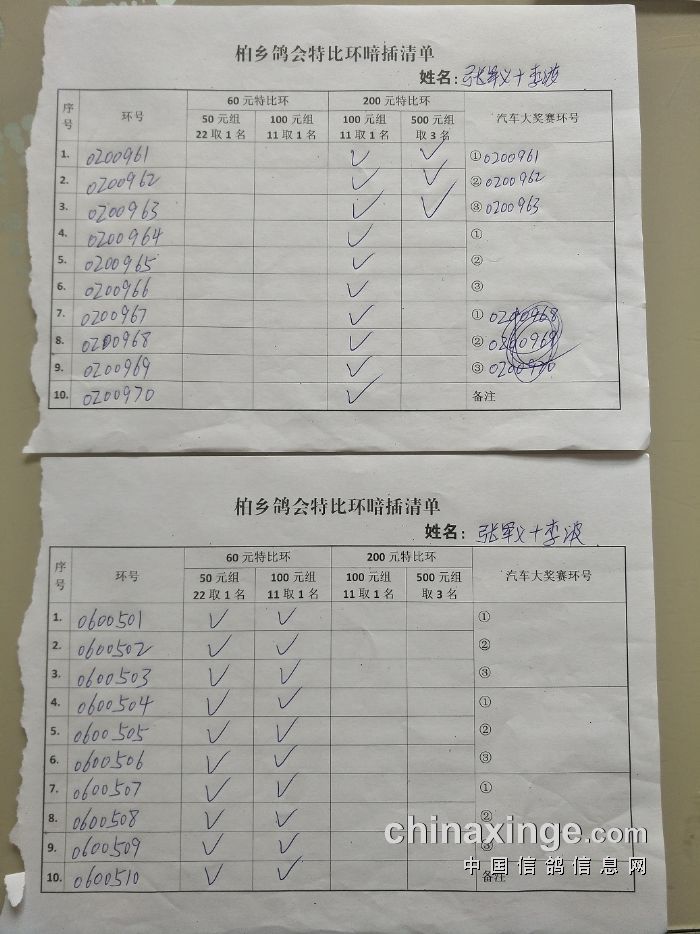 柏乡鸽会特比环暗插清单
姓名：张军义+李波
序号 环号 60 元特比环 200 元特比环 汽车大奖赛环号
50 元组 22 取 1 名 100 元组 11 取 1 名 100 元组 11 取 1 名 500 元组 取 3 名
1. 0200961 ✓ ✓ ① 0200961
2. 0200962 ✓ ✓ ② 0200962
3. 0200963 ✓ ✓ ③ 0200963
4. 0200964 ✓ ①
5. 0200965 ✓ ②
6. 0200966 ✓ ③
7. 0200967 ✓ ① 0200968
8. 0200968 ✓ ② 0200969
9. 0200969 ✓ ③ 0200970
10. 0200970 ✓ 备注
柏乡鸽会特比环暗插清单
姓名：张军义+李波
序号 环号 60 元特比环 200 元特比环 汽车大奖赛环号
50 元组 22 取 1 名 100 元组 11 取 1 名 100 元组 11 取 1 名 500 元组 取 3 名
1. 0600501 ✓ ✓ ①
2. 0600502 ✓ ✓ ②
3. 0600503 ✓ ✓ ③
4. 0600504 ✓ ✓ ①
5. 0600505 ✓ ✓ ②
6. 0600506 ✓ ✓ ③
7. 0600507 ✓ ✓ ①
8. 0600508 ✓ ✓ ②
9. 0600509 ✓ ✓ ③
10. 0600510 ✓ ✓ 备注
chinaxinge.com
中国信鸽信息网